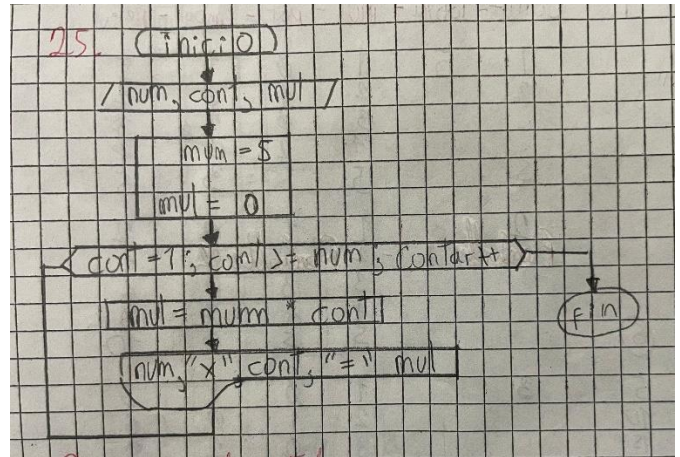 25. inicio
num, cont, mul
num = 5
mul = 0
cont = 1; cont >= num; contar++
mul = num * cont
num, "x", cont, "=" mul
Fin